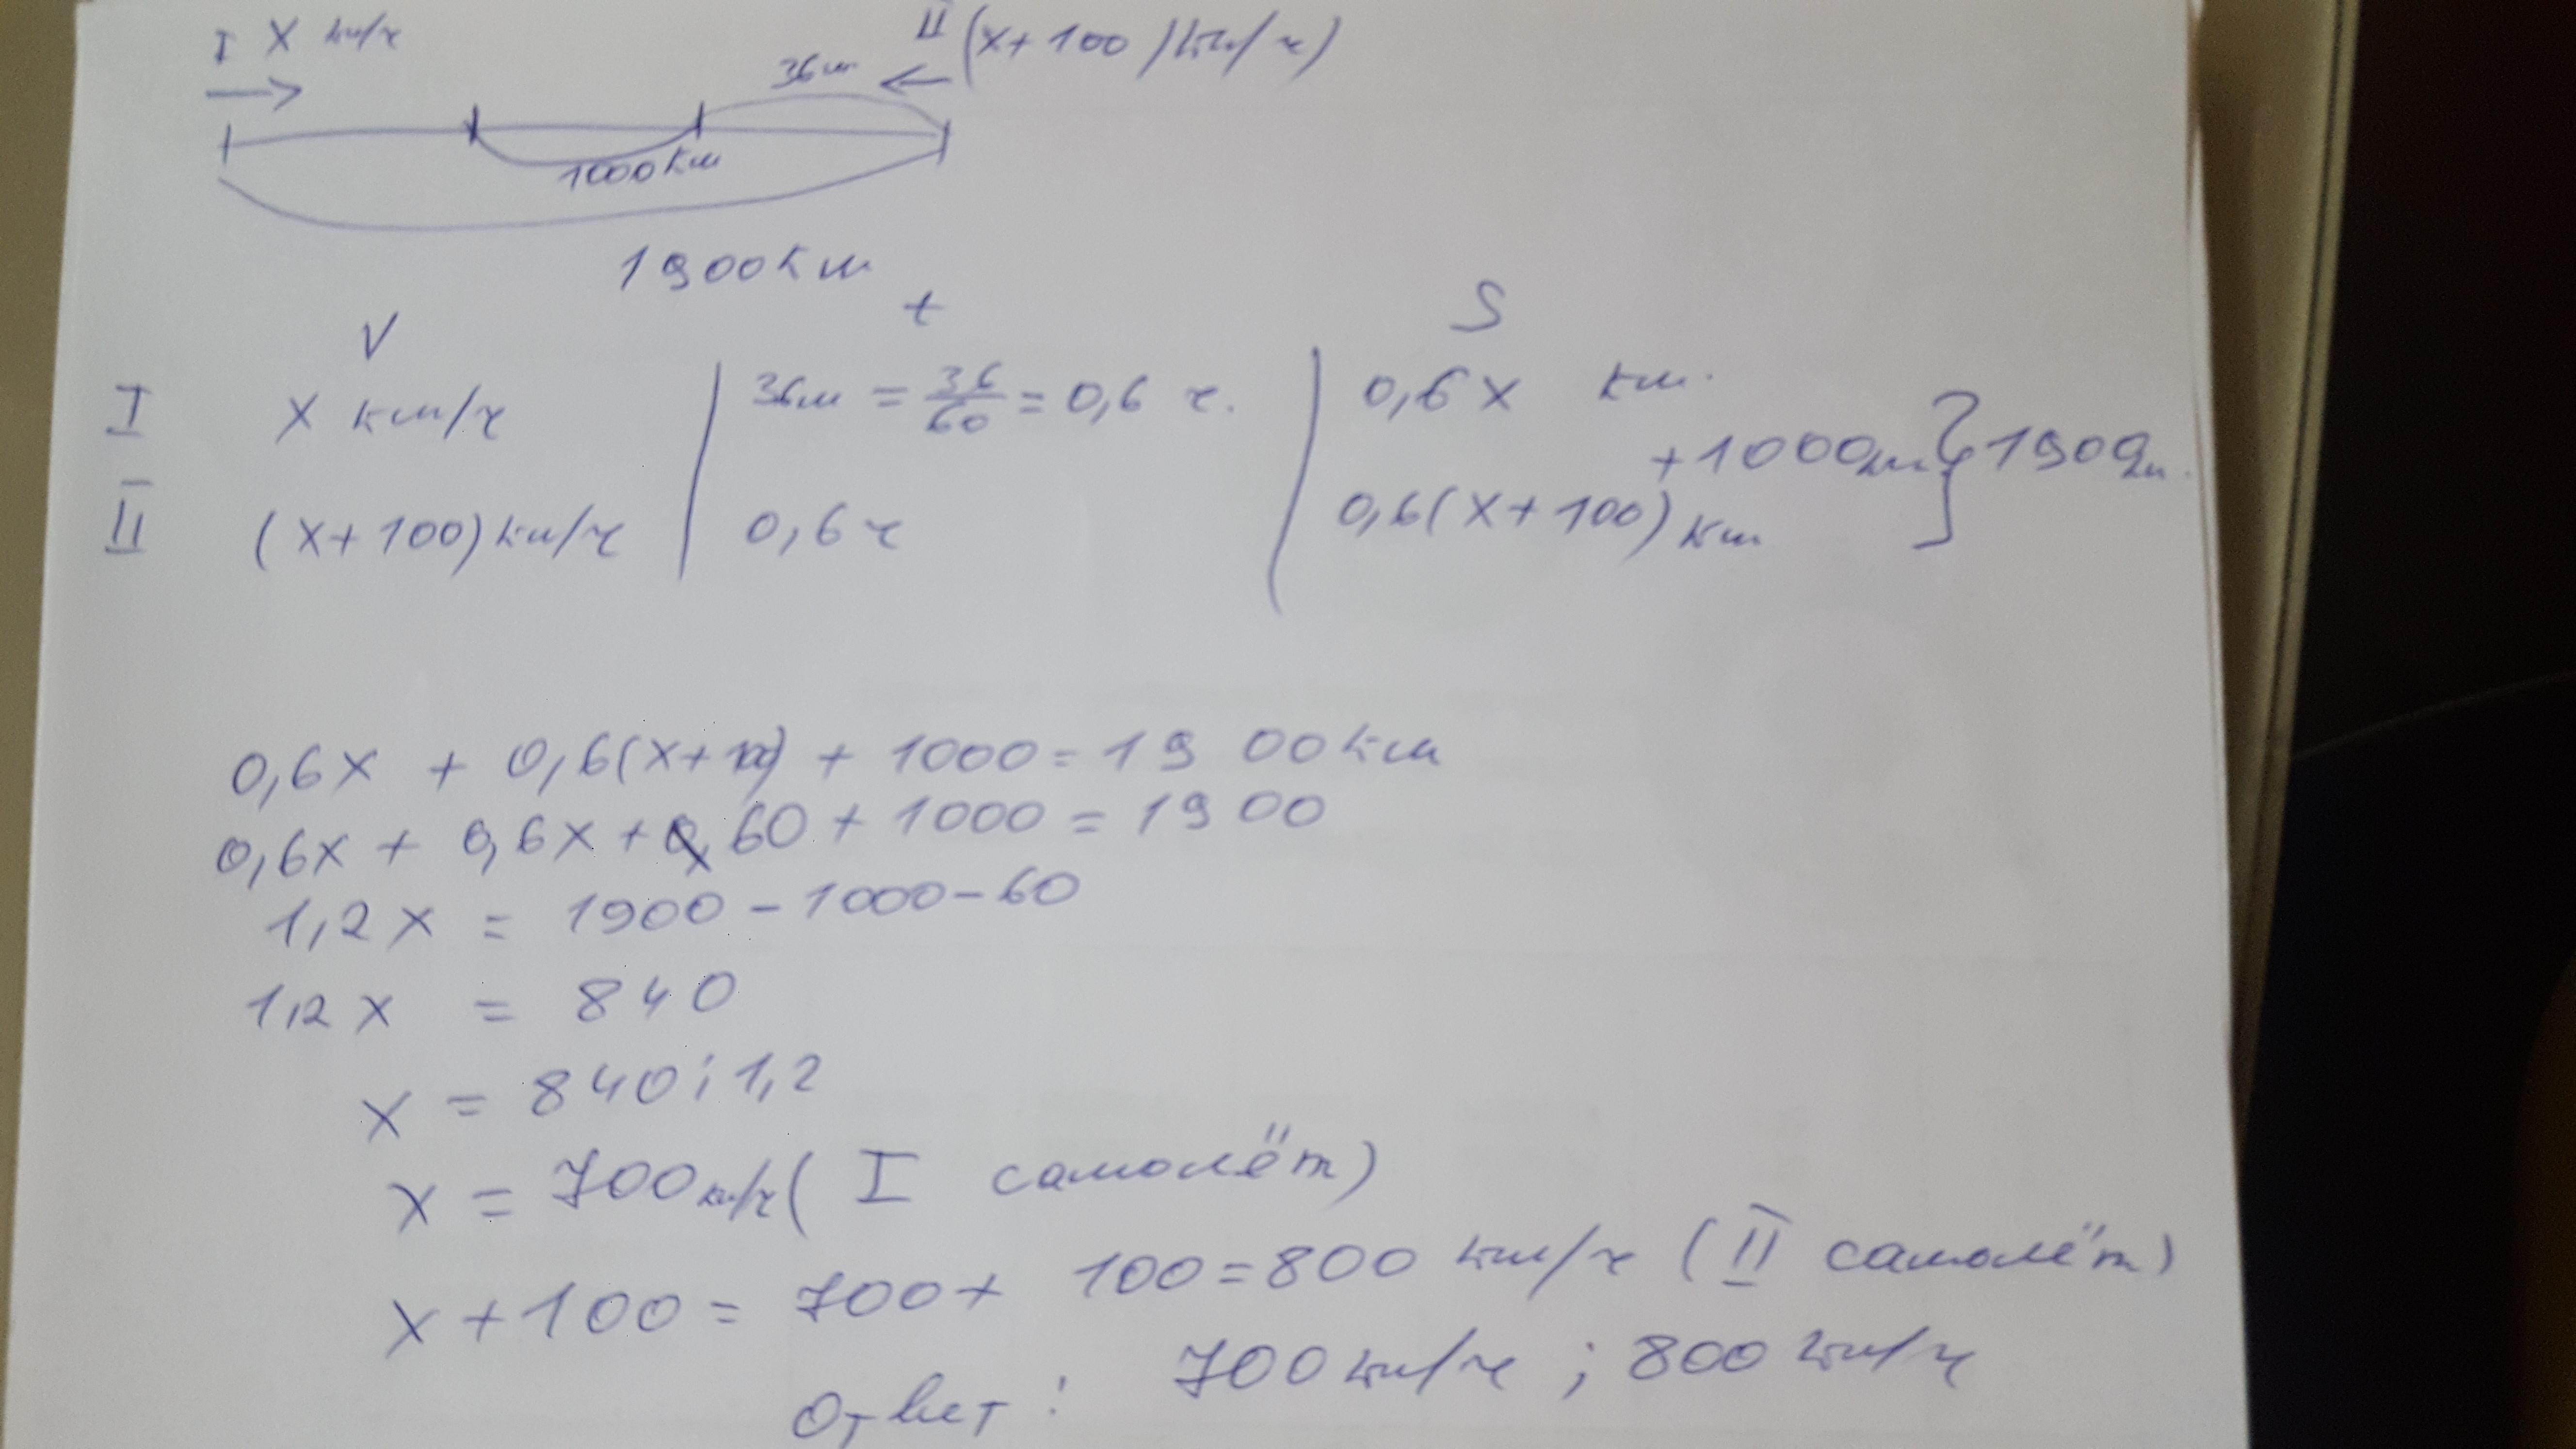 I X км/ч
II (x+100) км/ч)
36м
1000 км
1900 км
V t S
I X км/ч 36м = 36/60 = 0,6 ч. 0,6 x км.
+1000км } 1900км.
II (x+100) км/ч 0,6 ч 0,6(x+100) км
0,6x + 0,6(x+100) + 1000 = 1900 км
0,6x + 0,6x + 60 + 1000 = 1900
1,2 x = 1900 - 1000 - 60
1,2 x = 840
x = 840 : 1,2
x = 700 км/ч ( I самолёт)
x + 100 = 700 + 100 = 800 км/ч ( II самолёт)
Ответ : 700 км/ч ; 800 км/ч